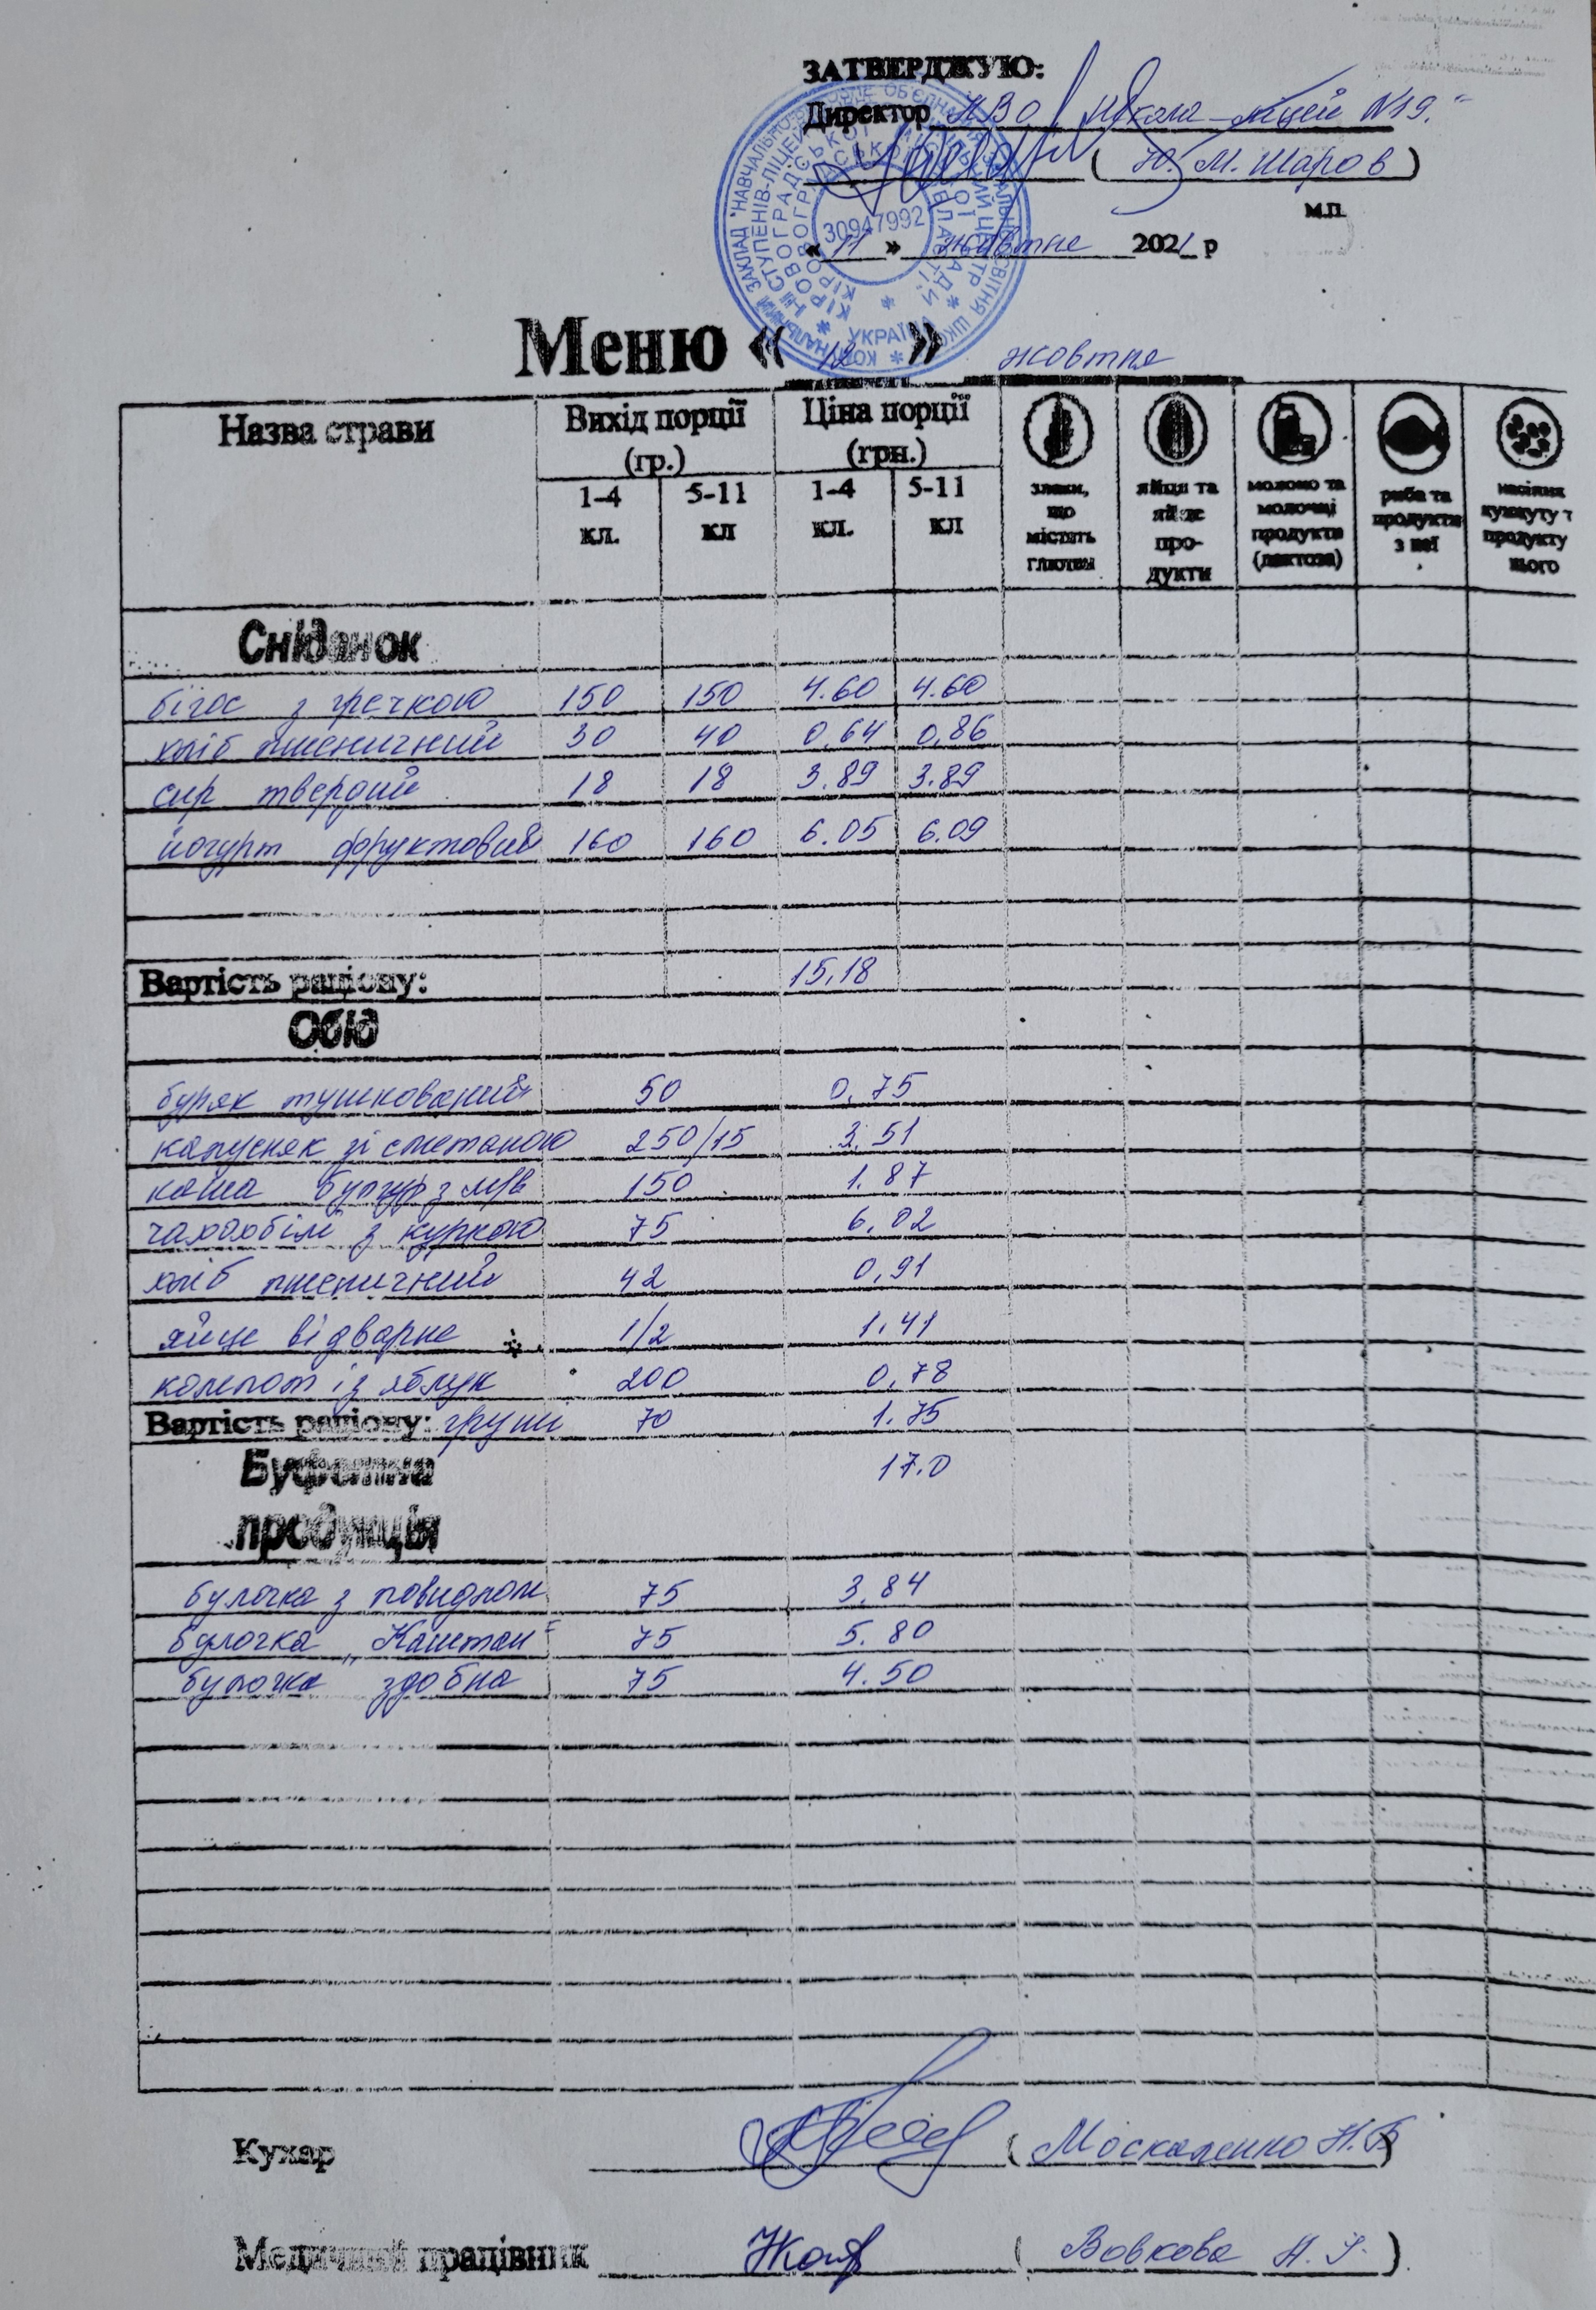 ЗАТВЕРДЖУЮ:
Директор НВО „Школа-ліцей №19"
( Ю. М. Шаров )
М.П.
« 11 » жовтня 2021 р
30947992
УКРАЇНА
Меню « 12 » жовтня
Назва страви Вихід порції (гр.) Ціна порції (грн.)
1-4 кл. 5-11 кл 1-4 кл. 5-11 кл
злаки, що містять глютен
яйця та яйце про- дукти
молоко та молочні продукти (лактоза)
риба та продукти з неї
насіння кунжуту т продукту нього
Сніданок
бігос з гречкою 150 150 4.60 4.60
хліб пшеничний 30 40 0,64 0,86
сир твердий 18 18 3.89 3.89
йогурт фруктовий 160 160 6.05 6.09
Вартість раціону: 15,18
Обід
буряк тушкований 50 0,75
капусняк зі сметаною 250/15 3.51
каша булгур з м/в 150 1.87
чахохбілі з куркою 75 6,02
хліб пшеничний 42 0,91
яйце відварне 1/2 1.41
компот із яблук 200 0,78
Вартість раціону: груші 70 1.75
Буфетна продукція 17.0
булочка з повидлом 75 3,84
булочка „Каштан" 75 5.80
булочка здобна 75 4.50
Кухар ( Москаленко Н.В )
Медичний працівник ( Вовкова Н. )